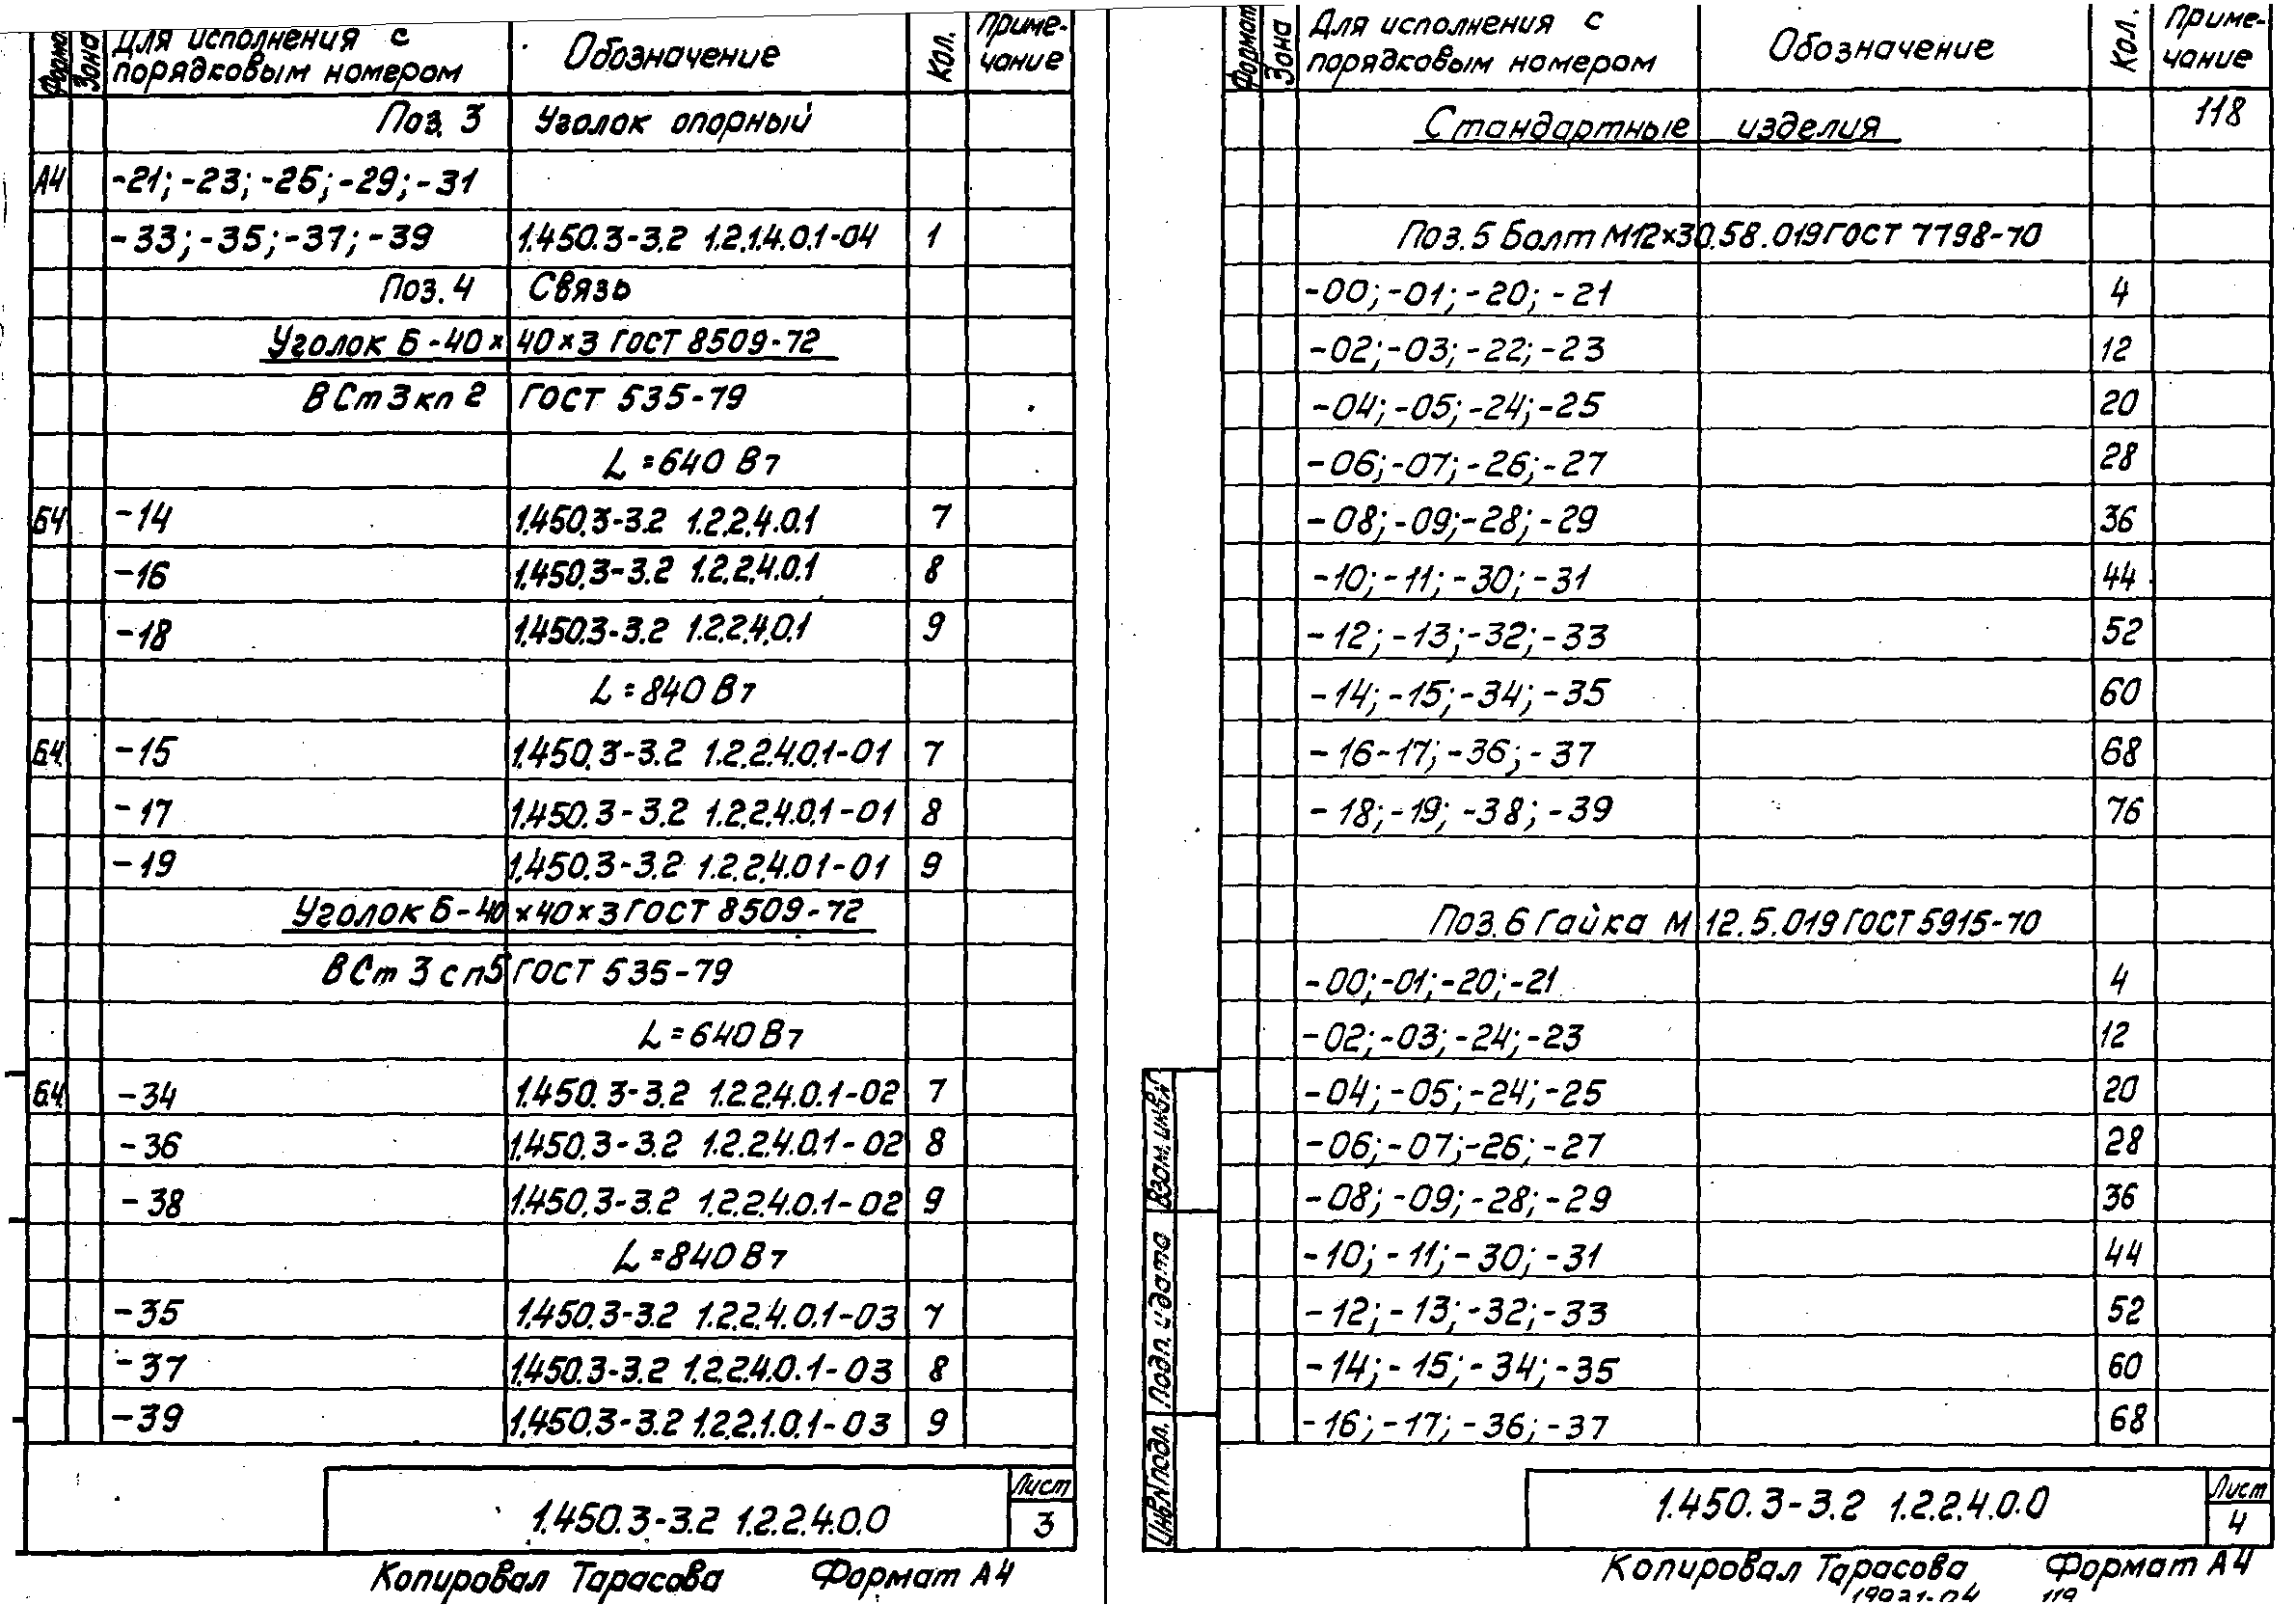 Формат Зона Для исполнения с порядковым номером Обозначение Кол. Приме-чание
Поз. 3 Уголок опорный
А4 -21; -23; -25; -29; -31
-33; -35; -37; -39 1.450.3-3.2 1.2.1.4.0.1-04 1
Поз. 4 Связь
Уголок Б-40×40×3 ГОСТ 8509-72
ВСт3кп2 ГОСТ 535-79
L=640 Вт
Б4 -14 1.450.3-3.2 1.2.2.4.0.1 7
-16 1.450.3-3.2 1.2.2.4.0.1 8
-18 1.450.3-3.2 1.2.2.4.0.1 9
L=840 Вт
Б4 -15 1.450.3-3.2 1.2.2.4.0.1-01 7
-17 1.450.3-3.2 1.2.2.4.0.1-01 8
-19 1.450.3-3.2 1.2.2.4.01-01 9
Уголок Б-40×40×3 ГОСТ 8509-72
ВСт3сп5 ГОСТ 535-79
L=640 Вт
Б4 -34 1.450.3-3.2 1.2.2.4.0.1-02 7
-36 1.450.3-3.2 1.2.2.4.0.1-02 8
-38 1.450.3-3.2 1.2.2.4.0.1-02 9
L=840 Вт
-35 1.450.3-3.2 1.2.2.4.0.1-03 7
-37 1.450.3-3.2 1.2.2.4.0.1-03 8
-39 1.450.3-3.2 1.2.2.1.0.1-03 9
1.450.3-3.2 1.2.2.4.0.0
Лист
3
Копировал Тарасова Формат А4
Формат Зона Для исполнения с порядковым номером Обозначение Кол. Приме-чание
Стандартные изделия 118
Поз. 5 Болт М12×30.58.019 ГОСТ 7798-70
-00; -01; -20; -21 4
-02; -03; -22; -23 12
-04; -05; -24; -25 20
-06; -07; -26; -27 28
-08; -09; -28; -29 36
-10; -11; -30; -31 44
-12; -13; -32; -33 52
-14; -15; -34; -35 60
-16-17; -36; -37 68
-18; -19; -38; -39 76
Поз. 6 Гайка М12.5.019 ГОСТ 5915-70
-00; -01; -20; -21 4
-02; -03; -24; -23 12
-04; -05; -24; -25 20
-06; -07; -26; -27 28
-08; -09; -28; -29 36
-10; -11; -30; -31 44
-12; -13; -32; -33 52
-14; -15; -34; -35 60
-16; -17; -36; -37 68
Взам. инв. №
Подп. и дата
Инв. № подл.
1.450.3-3.2 1.2.2.4.0.0
Лист
4
Копировал Тарасова Формат А4
19931-04 119